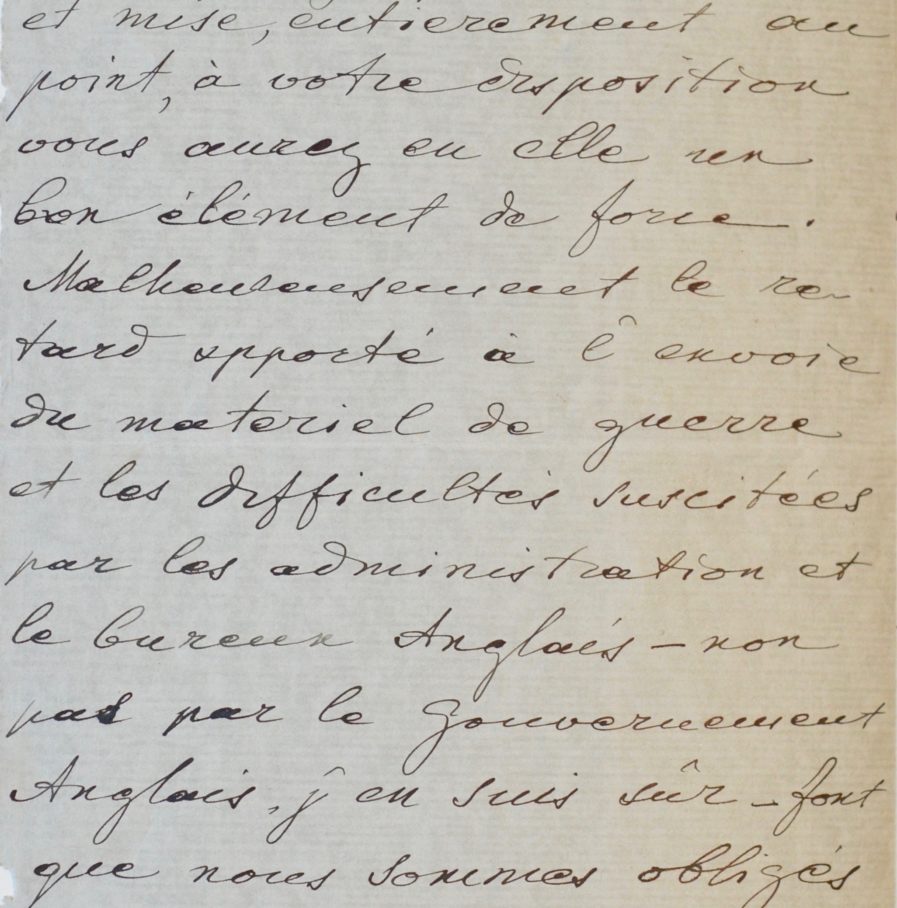 et mise, entierement au
point, à votre disposition
vous aurez en elle un
bon élément de force.
Malheureusement le re-
tard apporté à l'envoie
du materiel de guerre
et les difficultés suscitées
par les administration et
le bureux Anglais - non
pas par le Gouvernement
Anglais, j'en suis sûr - font
que nous sommes obligés